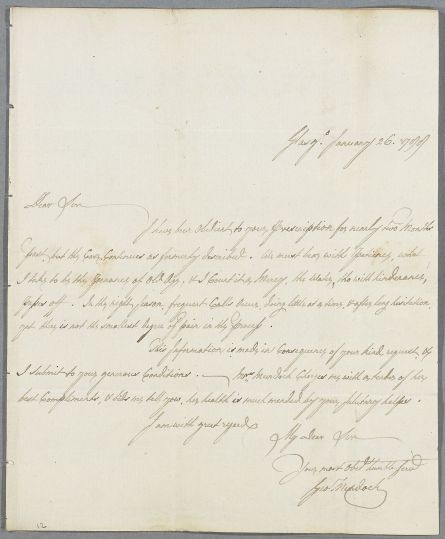 Glasgo. January 26. 1788
Dear Sir
I have been Obedient to your Prescription for nearly two Months
past, but the Case Continues as formerly described. We must bear with Patience, what
I take to be the Penances of Old Age, & I Count it a Mercy, the Water, tho with hinderance,
passes off. In the night Season frequent Calls twice, doing little at a time, & after long hesitation
yet there is not the smallest degree of pain in the Process.
This Information is made in Consequence of your kind request, &
I submit to your generous Conditions. Mrs. Murdoch Charges me with a tender of her
best Compliments, & bids me tell you, her health is much mended by your Salutary helps.
I am with great regard
My dear Sir
Your most Obedt humble Servt
Geo: Murdoch
12